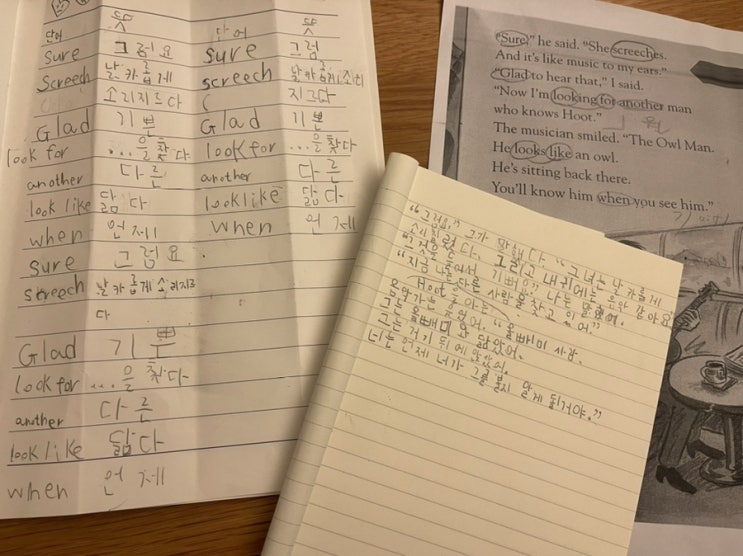 단어 뜻 단어 뜻
sure 그럼요 sure 그럼
screech 날카롭게 screech 날카롭게 소리
소리지르다 지르다
Glad 기쁜 Glad 기쁜
look for ...을 찾다 look for ...을 찾다
another 다른 another 다른
look like 닮다 look like 닮다
when 언제 when 언제
sure 그럼요
screech 날카롭게 소리지르
다
Glad 기쁜
look for ...을 찾다
another 다른
look like 닮다
when 언제
"그럼요." 그가 말했다 "그녀는 날카롭게
소리질렀다. 그리고 내 귀에는 음악 같아요
들어서 기뻐요" 나는 말했어.
"지금 나는 다른 사람을 찾고 있어."
Hoot 을 아는
음악가는 웃었어. "올빼미 사람.
그는 올빼미와 닮았어.
그는 거기 뒤에 앉았어.
너는 언제 너가 그를 볼지 알게 될거야."
"Sure," he said. "She screeches.
And it's like music to my ears."
"Glad to hear that," I said.
"Now I'm looking for another man
who knows Hoot."
The musician smiled. "The Owl Man.
He looks like an owl.
He's sitting back there.
You'll know him when you see him."